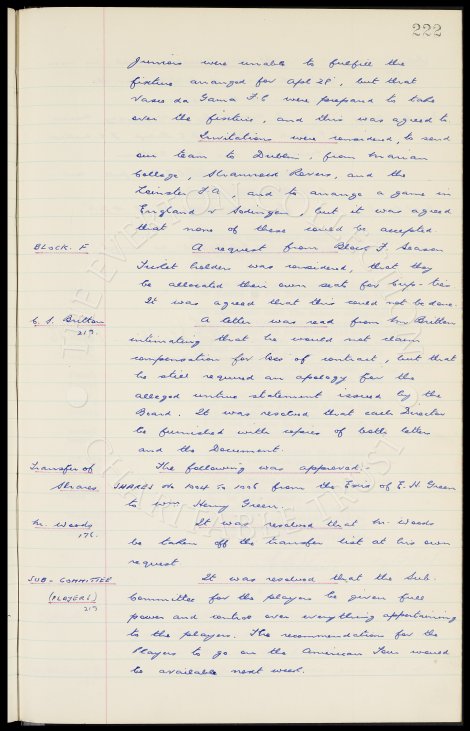 222
Juniors were unable to fulfill the
fixture arranged for Apl 28, but that
Vasco da Gama F C were prepared to take
over the fixture, and this was agreed to.
Invitations were considered, to send
our team to Dublin, from Marian
College, Shamrock Rovers, and the
Leinster F A, and to arrange a game in
England v Sodingen, but it was agreed
that none of these could be accepted.
BLOCK. F. A request from Block F. Season
Ticket holders was considered, that they
be allocated their own seats for Cup-ties
It was agreed that this could not be done.
C. S. Britton A letter was read from Mr Britton
219.
intimating that he would not claim
compensation for loss of contract, but that
he still required an apology for the
alleged untrue statement issued by the
Board. It was resolved that each Director
be furnished with copies of both letters
and the Document.
Transfer of The following was approved:-
Shares SHARES No 1004 to 1006 from the Exrs of E. H. Green
to Wm Henry Green.
Mr. Woods It was resolved that Mr. Woods
176.
be taken off the transfer list at his own
request
SUB-COMMITTEE It was resolved that the Sub.
(PLAYERS) Committee for the players be given full
219
power and control over everything appertaining
to the players. The recommendations for the
Players to go on the American Tour would
be available next week.
THE EVERTON COLLECTION
CHARITABLE TRUST